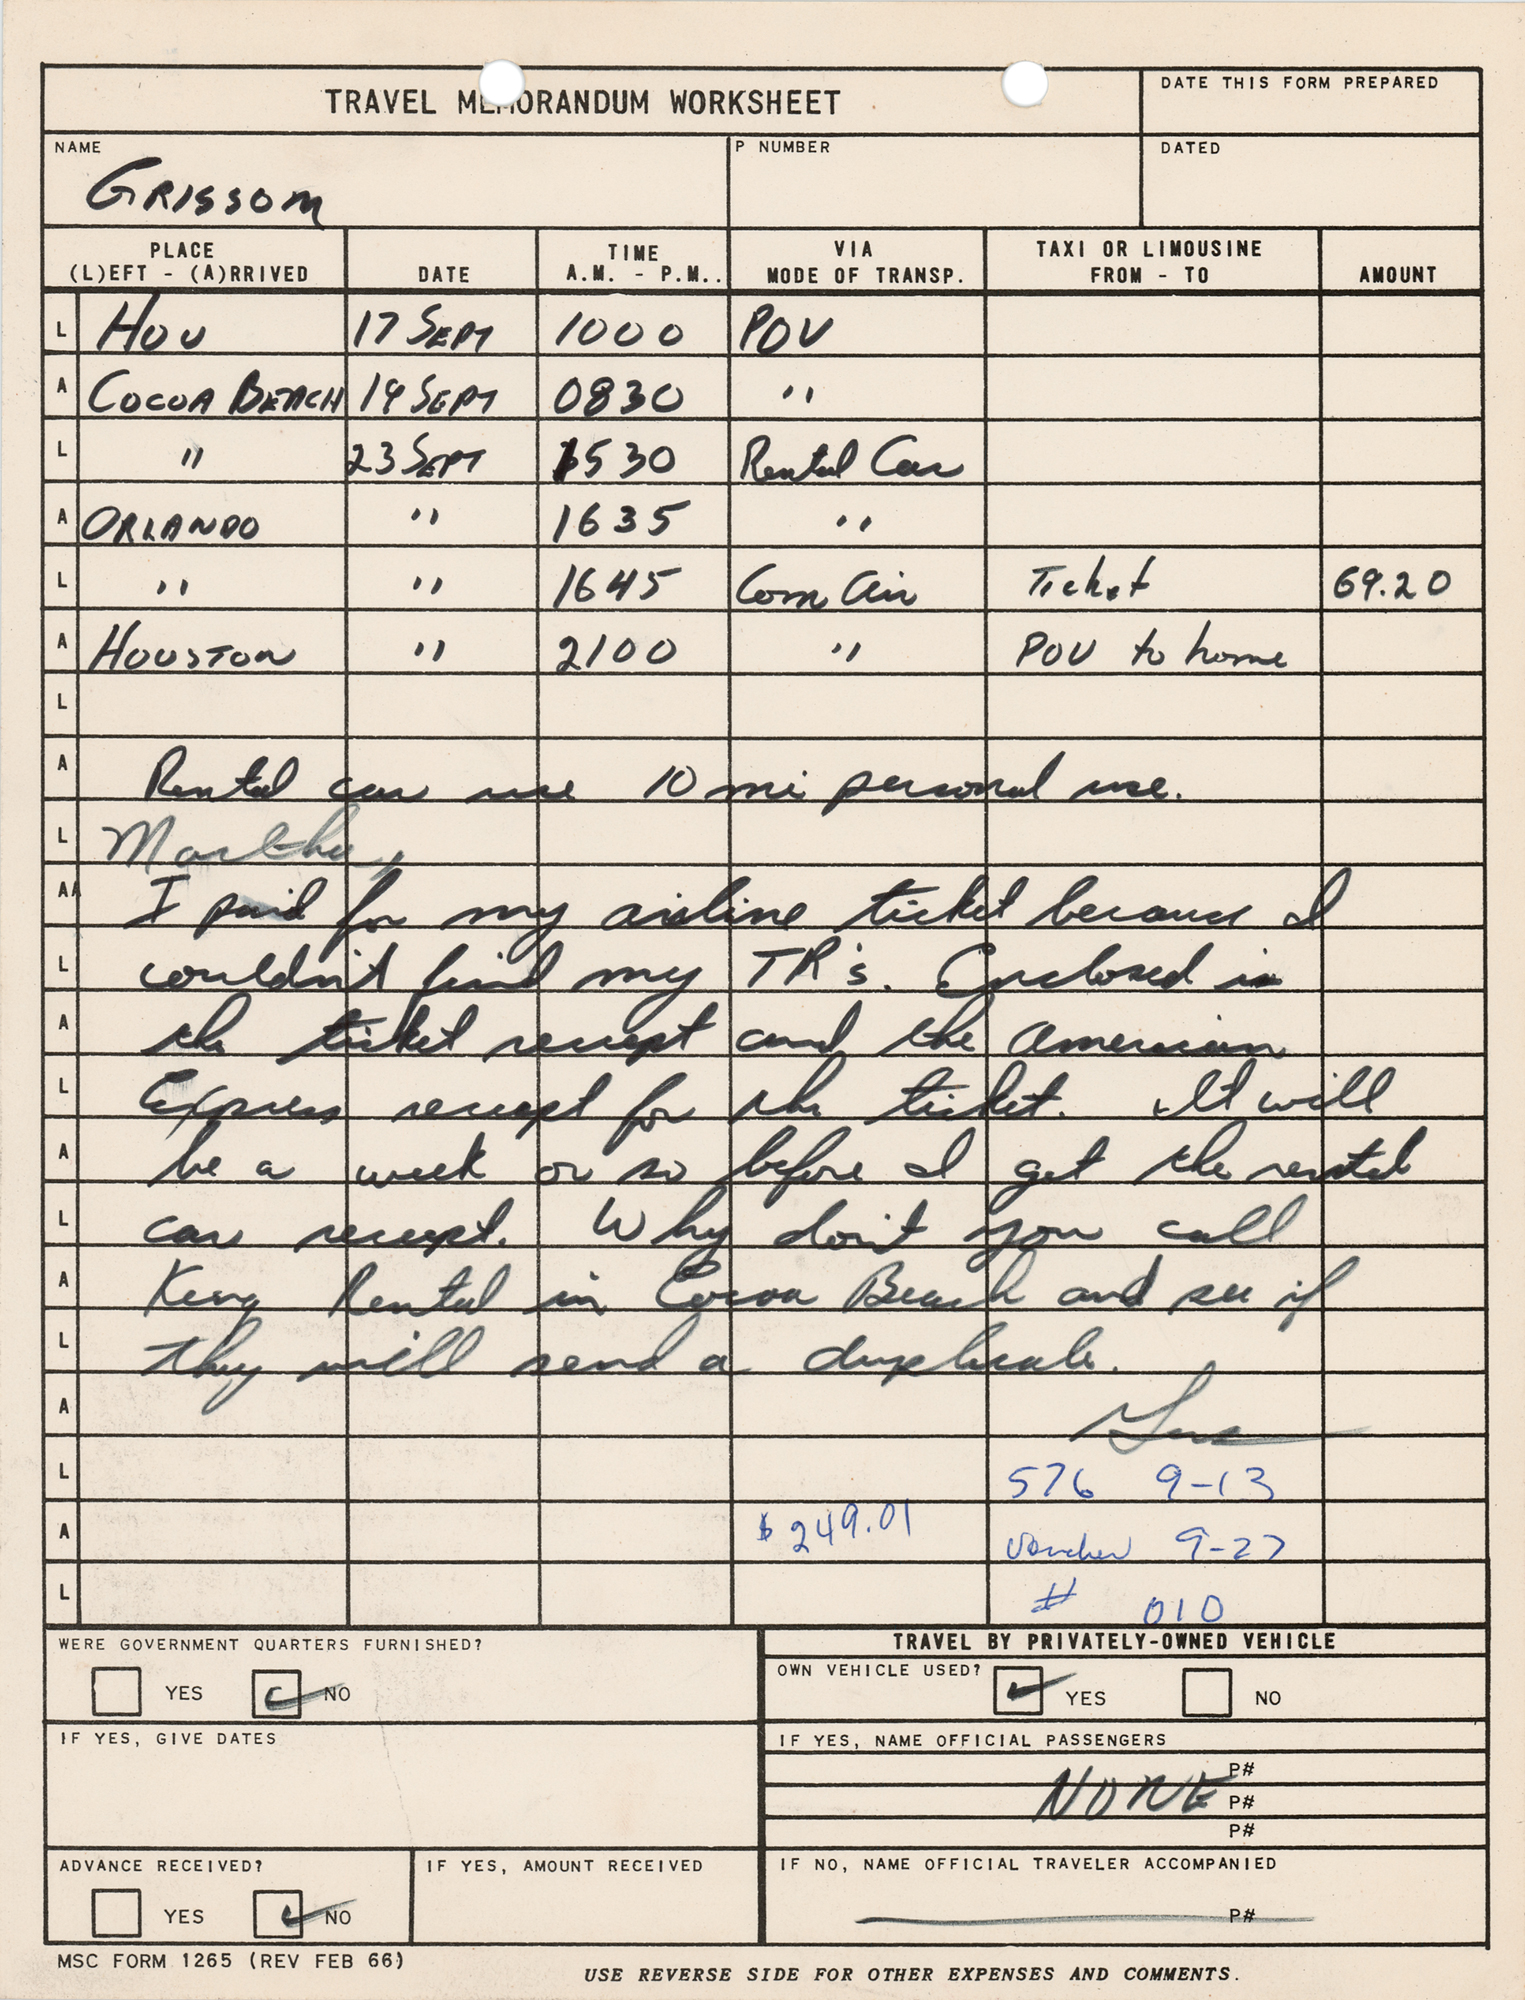 TRAVEL MEMORANDUM WORKSHEET
DATE THIS FORM PREPARED
NAME
P NUMBER
DATED
GRISSOM
PLACE
(L)EFT - (A)RRIVED
DATE
TIME
A.M. - P.M..
VIA
MODE OF TRANSP.
TAXI OR LIMOUSINE
FROM - TO
AMOUNT
L HOU 17 SEPT 1000 POV
A COCOA BEACH 19 SEPT 0830 "
L " 23 SEPT 1530 Rental Car
A ORLANDO " 1635 "
L " " 1645 Com Air Ticket 69.20
A HOUSTON " 2100 " POV to home
L
A Rental car use 10 mi personal use.
L Martha,
AA I paid for my airline ticket because I
L couldn't find my TR's. Enclosed is
A the ticket receipt and the American
L Express receipt for the ticket. It will
A be a week or so before I get the rental
L car receipt. Why don't you call
A King Rental in Cocoa Beach and see if
L they will send a duplicate.
A Gus
L 576 9-13
A $249.01 Voucher 9-27
L # 010
WERE GOVERNMENT QUARTERS FURNISHED?
YES NO
IF YES, GIVE DATES
TRAVEL BY PRIVATELY-OWNED VEHICLE
OWN VEHICLE USED?
YES NO
IF YES, NAME OFFICIAL PASSENGERS
P#
NONE P#
P#
ADVANCE RECEIVED?
YES NO
IF YES, AMOUNT RECEIVED
IF NO, NAME OFFICIAL TRAVELER ACCOMPANIED
P#
MSC FORM 1265 (REV FEB 66)
USE REVERSE SIDE FOR OTHER EXPENSES AND COMMENTS.